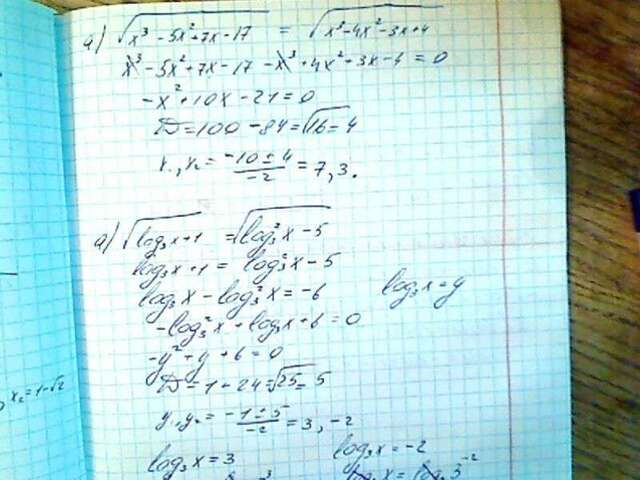 а) √(x³ - 5x² + 7x - 17) = √(x³ - 4x² - 3x + 4)
x³ - 5x² + 7x - 17 - x³ + 4x² + 3x - 4 = 0
-x² + 10x - 21 = 0
D = 100 - 84 = √16 = 4
x₁, x₂ = (-10 ± 4)/(-2) = 7, 3.
а) √(log₃x + 1) = √(log₃²x - 5)
log₃x + 1 = log₃²x - 5
log₃x - log₃²x = -6 log₃x = y
-log₃²x + log₃x + 6 = 0
-y² + y + 6 = 0
x₂ = 1 - √2
D = 1 + 24 = √25 = 5
y₁, y₂ = (-1 ± 5)/(-2) = 3, -2
log₃x = 3 log₃x = -2
log₃x = log₃3⁻²